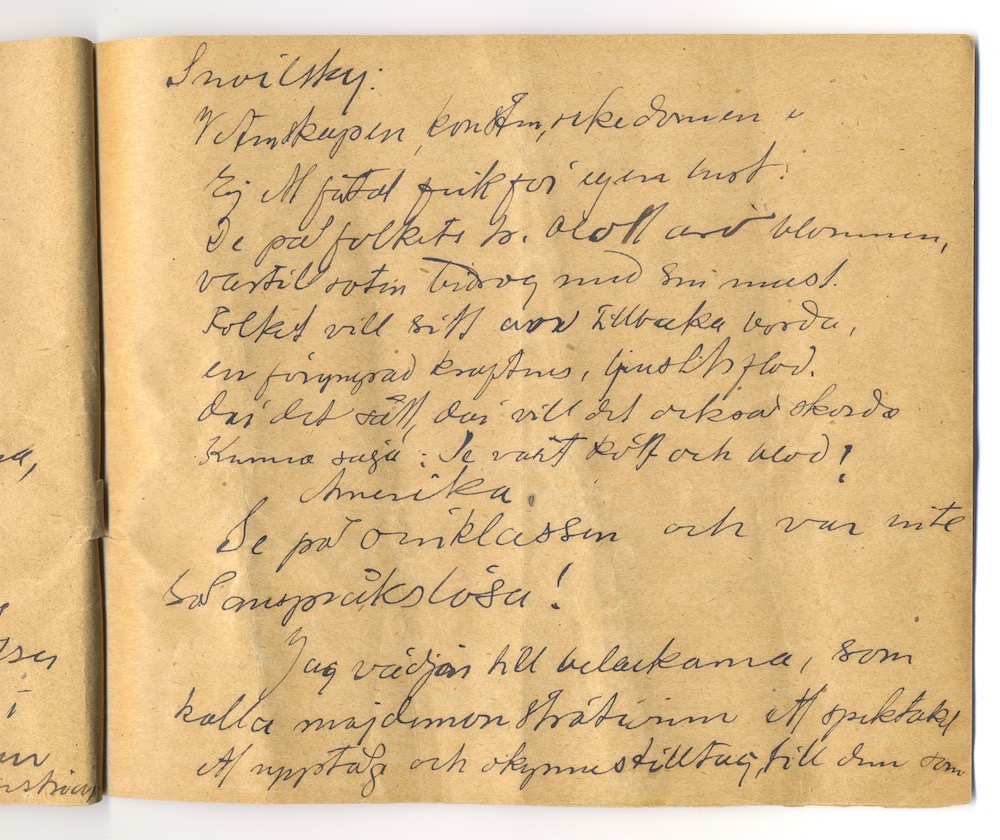 Snoilsky:
Vetenskapen, konsten, rikedomen
Ej ett fåtal fick för egen lust.
De på folkets blott arv blommen,
vartill roten bidrog med sin must.
Folket vill sitt arv tillbaka borda,
en föryngrad kraftens, ljusets flod.
där det sått, där vill det också skörda
Kunna säga: Se vårt kött och blod!
Amerika
Se på överklassen och var inte
så anspråkslösa!
Jag vädjar till belackarna, som
kalla majdemonstrationen ett spektakel
ett upptåg och okynnestilltag, till dem som